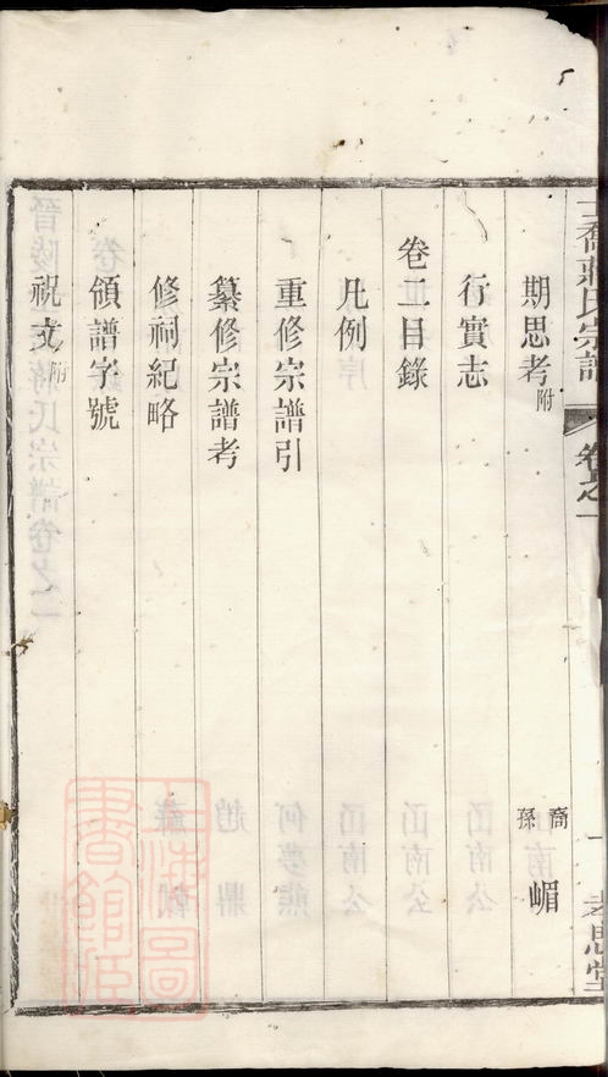 喬蔣氏宗譜 卷之一 一 孝思堂
期思考附 裔孫嵋
行實志
卷二目錄
凡例
重修宗譜引
纂修宗譜考
修祠紀略
領譜字號
祝文附